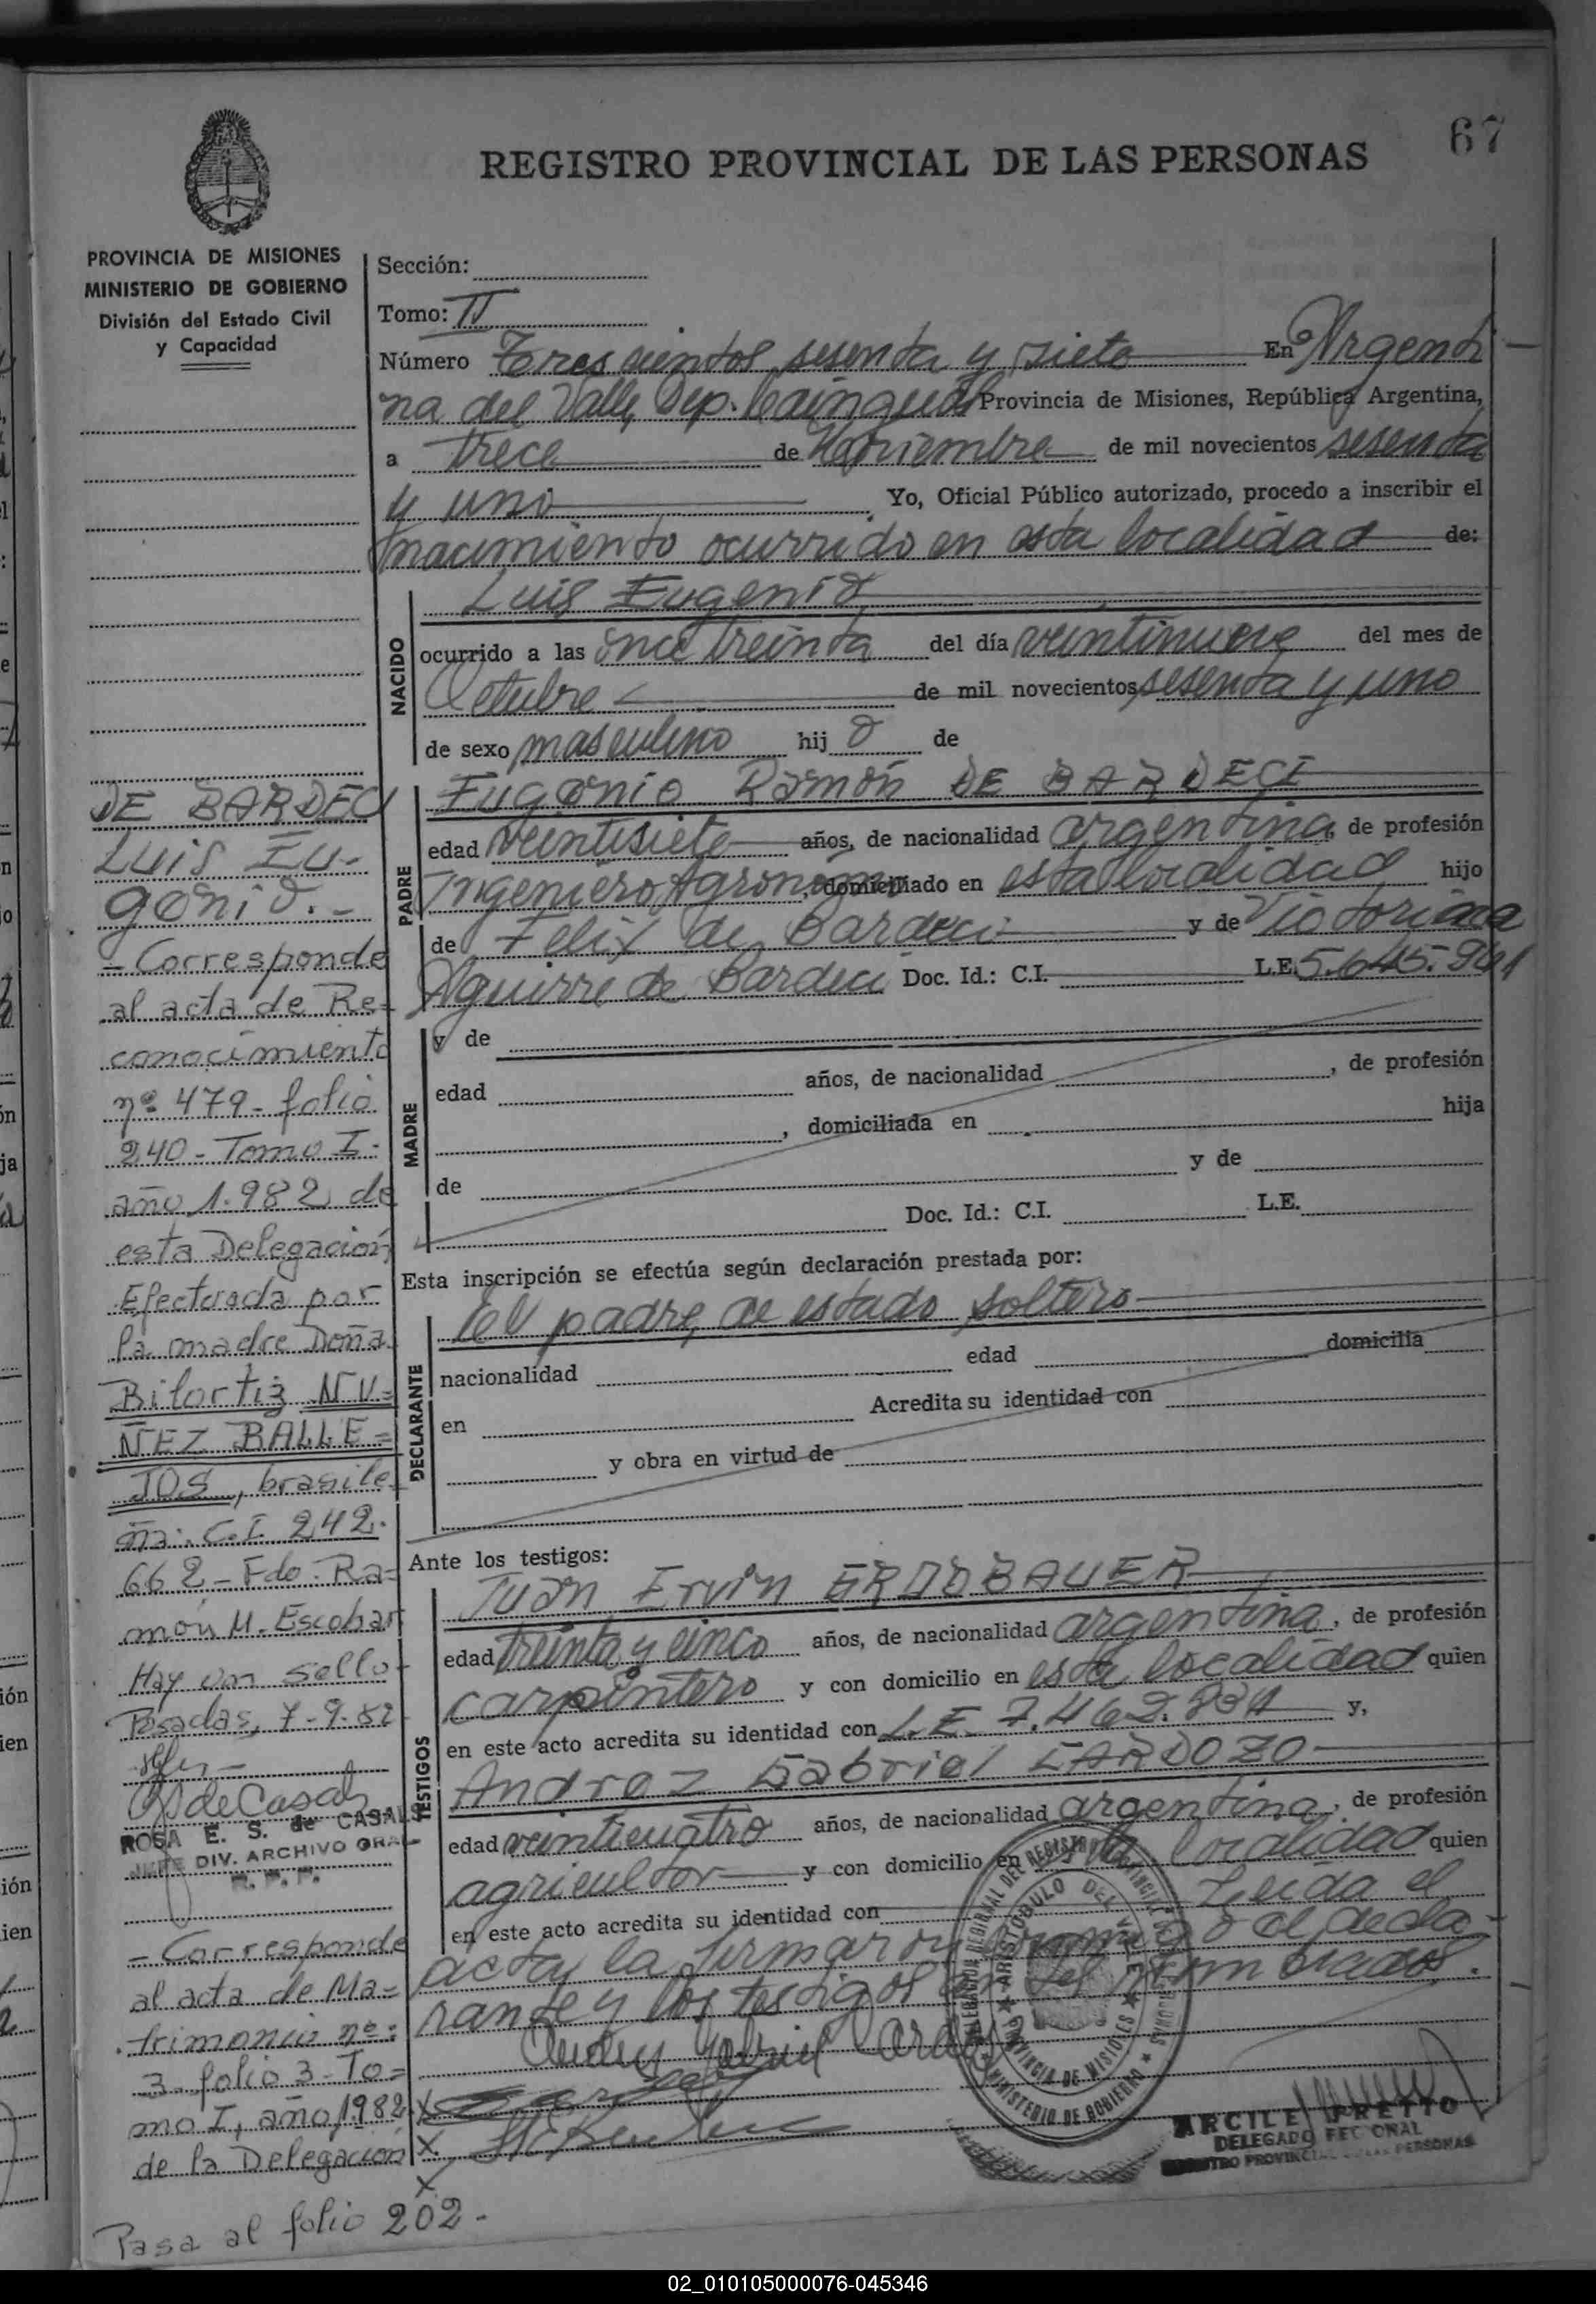 67
REGISTRO PROVINCIAL DE LAS PERSONAS
PROVINCIA DE MISIONES
MINISTERIO DE GOBIERNO
División del Estado Civil
y Capacidad
DE BARDECI
LUIS EU-
genio.-
- Corresponde
al acta de Re-
conocimiento
nº 479 - folio
240 - Tomo I -
año 1.982 de
esta Delegación
Efectuada por
la madre Doña
Bilortiz NU=
ÑEZ BALLE=
JOS, brasile-
ña: C.I. 242.
662 - Fdo. Ra=
món M. Escobar
Hay un sello -
Posadas, 7-9-82
ROSA E. S. de CASALS
JEFE DIV. ARCHIVO GRAL
R. P. P.
- Corresponde
al acta de Ma=
trimonio nº:
3 - folio 3 - To=
mo I, año 1982
de la Delegación
Pasa al folio 202.-
Sección:
Tomo: II
Número Trescientos sesenta y siete En Argenti
na del Valle, Dep. Cainguás Provincia de Misiones, República Argentina,
a trece de Noviembre de mil novecientos sesenta
y uno Yo, Oficial Público autorizado, procedo a inscribir el
nacimiento ocurrido en esta localidad de:
NACIDO
Luis Eugenio
ocurrido a las once treinta del día veintinueve del mes de
Octubre de mil novecientos sesenta y uno
de sexo masculino hij o de
PADRE
Eugenio Ramón DE BARDECI
edad veintisiete años, de nacionalidad argentina, de profesión
Ingeniero Agrónomo, domiciliado en esta localidad hijo
de Felix de Bardeci y de Victoriana
Aguirre de Bardeci Doc. Id.: C.I. L.E. 5.645.941
MADRE
y de
edad años, de nacionalidad , de profesión
, domiciliada en hija
de y de
Doc. Id.: C.I. L.E.
Esta inscripción se efectúa según declaración prestada por:
DECLARANTE
El padre, de estado soltero
nacionalidad edad domicilia
en Acredita su identidad con
y obra en virtud de
Ante los testigos:
TESTIGOS
Juan Ervin ERDOBAUER
edad treinta y cinco años, de nacionalidad argentina, de profesión
carpintero y con domicilio en esta localidad quien
en este acto acredita su identidad con L.E. 7.462.834 y,
Andrez Gabriel CARDOZO
edad veinticuatro años, de nacionalidad argentina, de profesión
agricultor y con domicilio en localidad quien
en este acto acredita su identidad con Leída el
acta, la firmaron conmigo el decla-
rante y los testigos nombrados.
DELEGACION REGIONAL DEL REGISTRO PROVINCIAL DE LAS PERSONAS
ARISTOBULO DEL VALLE
PROVINCIA DE MISIONES
MINISTERIO DE GOBIERNO
ARCILE PRETTO
DELEGADO REGIONAL
REGISTRO PROVINCIAL DE LAS PERSONAS
02_010105000076-045346